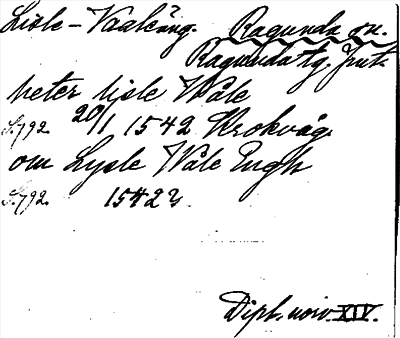 Lisle-Vaaläng. Ragunda sn.
Ragunda tg. Jmtl.
heter lisle Wåle
S. 792. 20/1 1542 Krokvåg.
om Lysle Wåle Engh
S. 792. 1542
Dipl. norv. XIV.